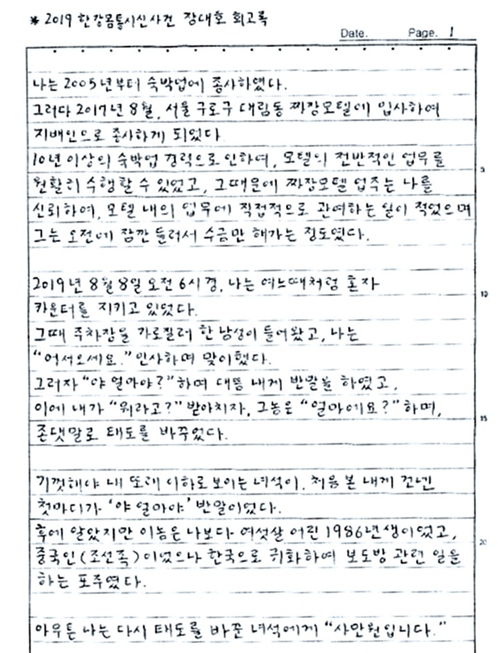 * 2019 한강몸통시신사건 장대호 회고록
Date. Page. 1
나는 2005년부터 숙박업에 종사하였다.
그러다 2017년 8월, 서울 구로구 대림동 짜장모텔에 입사하여
지배인으로 종사하게 되었다
10년 이상의 숙박업 경력으로 인하여, 모텔의 전반적인 업무를
원활히 수행할 수 있었고, 그때문에 짜장모텔 업주는 나를
신뢰하여, 모텔 내의 업무에 직접적으로 관여하는 일이 적었으며
그는 오전에 잠깐 들러서 수금만 해가는 정도였다.
5
2019년 8월 8일 오전 6시경, 나는 여느때처럼 혼자
10
카운터를 지키고 있었다.
그때 주차장을 가로질러 한 남성이 들어왔고, 나는
"어서오세요." 인사하며 맞이했다.
그러자 "야 얼마야?" 하며 대뜸 내게 반말을 하였고,
이에 내가 "뭐라고?" 받아치자, 그놈은 "얼마에요?" 하며,
15
존댓말로 태도를 바꾸었다.
기껏해야 내 또래 이하로 보이는 녀석이, 처음 본 내게 건넨
첫마디가 '야 얼마야' 반말이었다.
후에 알았지만 이놈은 나보다 여섯살 어린 1986년생이었고,
중국인(조선족)이었으나 한국으로 귀화하여 보도방 관련 일을
20
하는 포주였다.
아무튼 나는 다시 태도를 바꾼 녀석에게 "사만원입니다."